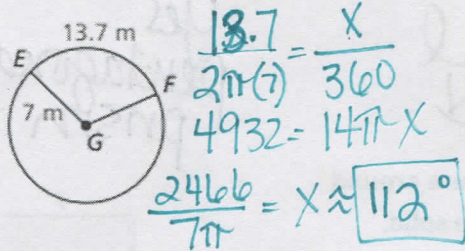 13.7 m
E
F
7 m
G
13.7 / 2π(7) = X / 360
4932 = 14π X
2466 / 7π = X ≈ 112°